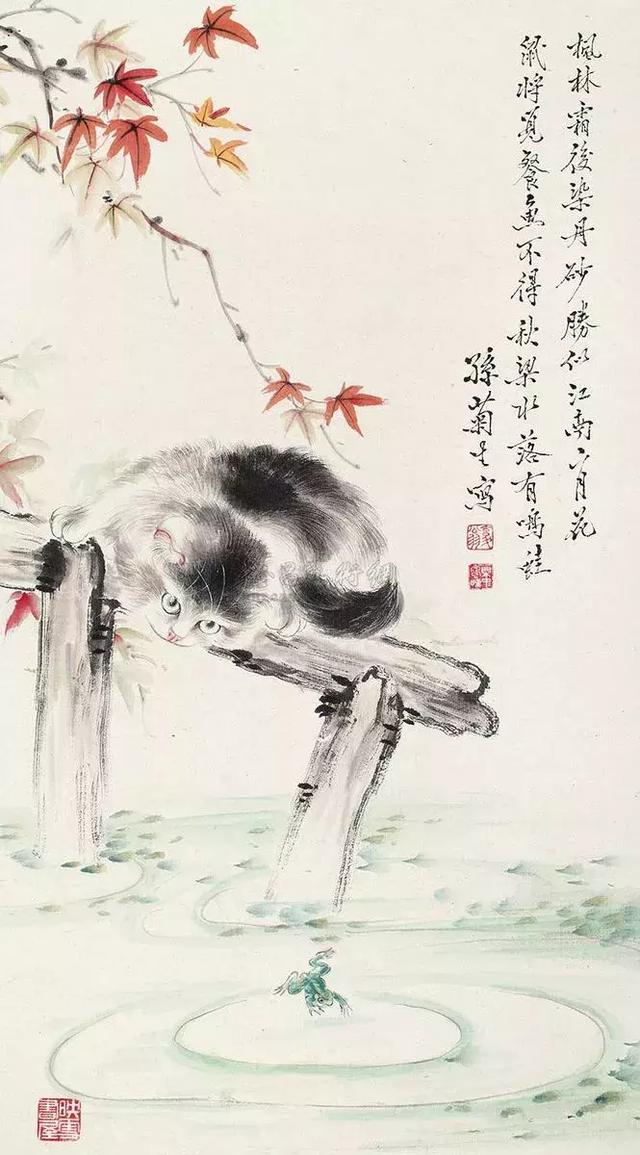 枫林霜後染丹砂勝似江南八月花
鼠將覓餐魚不得秋梁水落有鳴蛙
孫菊生寫
映雪書屋